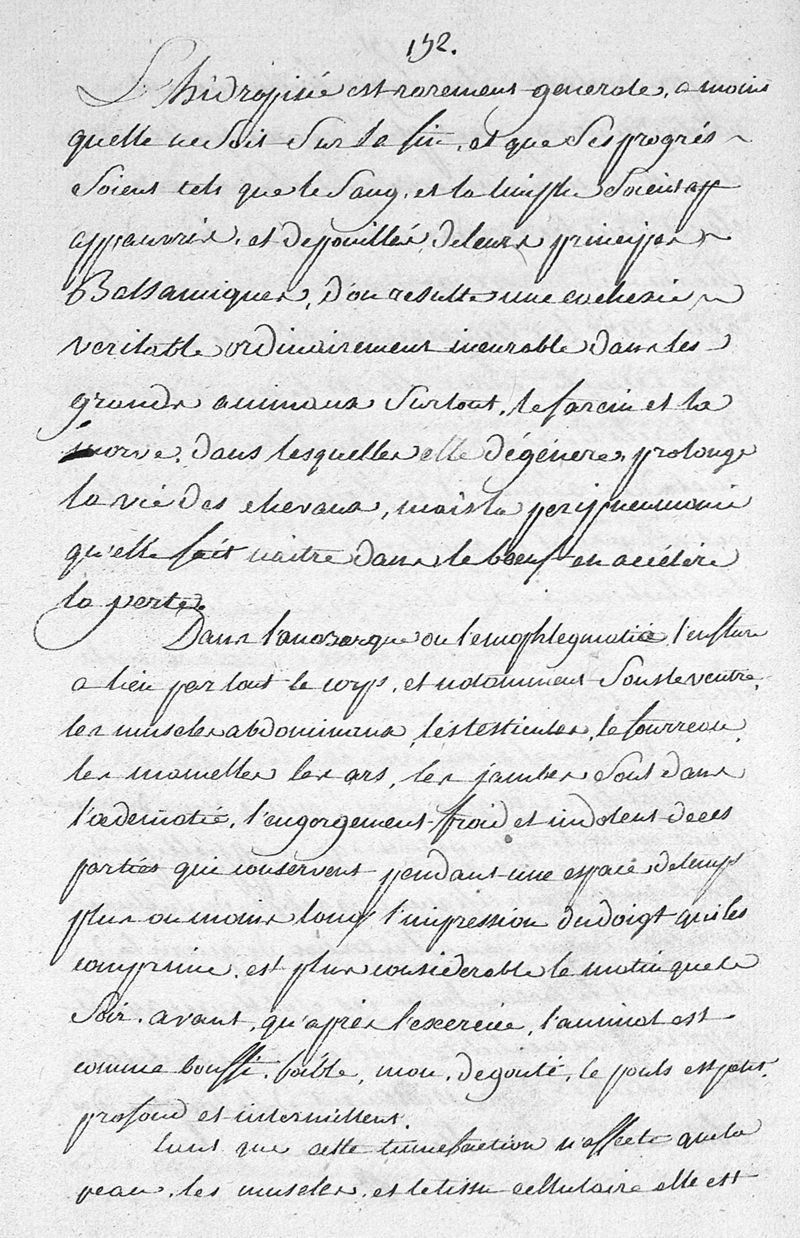 152.
L'hidropisie est rarement generale, a moins
quelle ne soit sur la fin, et que ses progrés
soient tels que le sang, et la limphe soient
appauvris, et depouillés de leurs principes
Balsamiques, d'ou resulte une cachexie
veritable ordinairement incurable dans les
grands animaux surtout, le farcin et la
morve, dans lesquelles elle dégénere, prolonge
la vie des chevaux, mais la peripneumonie
qu'elle fait naitre dans le bœuf en accélere
la perte.
Dans l'anazarque ou l'emophlegmatie l'enflure
a lieu par tout le corps, et notamment sous le ventre,
les muscles abdominaux, les testicules, le fourreau,
les mamelles les ars, les jambes sont dans
l'œdematie, l'engorgement froid et indolent de ces
parties qui conservent pendant une espace de temps
plus ou moins long l'impression du doigt qui les
comprime, est plus considerable le matin que le
soir, avant, qu'après l'exercice, l'animal est
comme bouffi, foible, mou, degouté, le pouls est petit,
profond et intermittent.
tant que cette tumefaction n'affecte que la
peau, les muscles, et le tissu cellulaire elle est